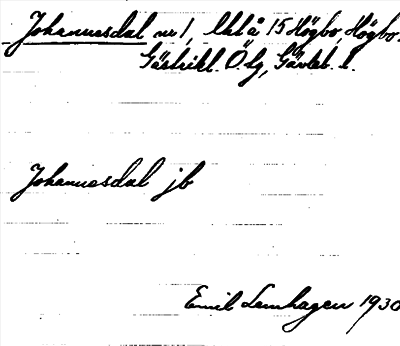 Johannesdal nr 1, Utl å 15 Högbo, Högbo.
Gästrikl. Ö. tg, Gävleb. l.
Johannesdal jb
Emil Lennhagen 1930